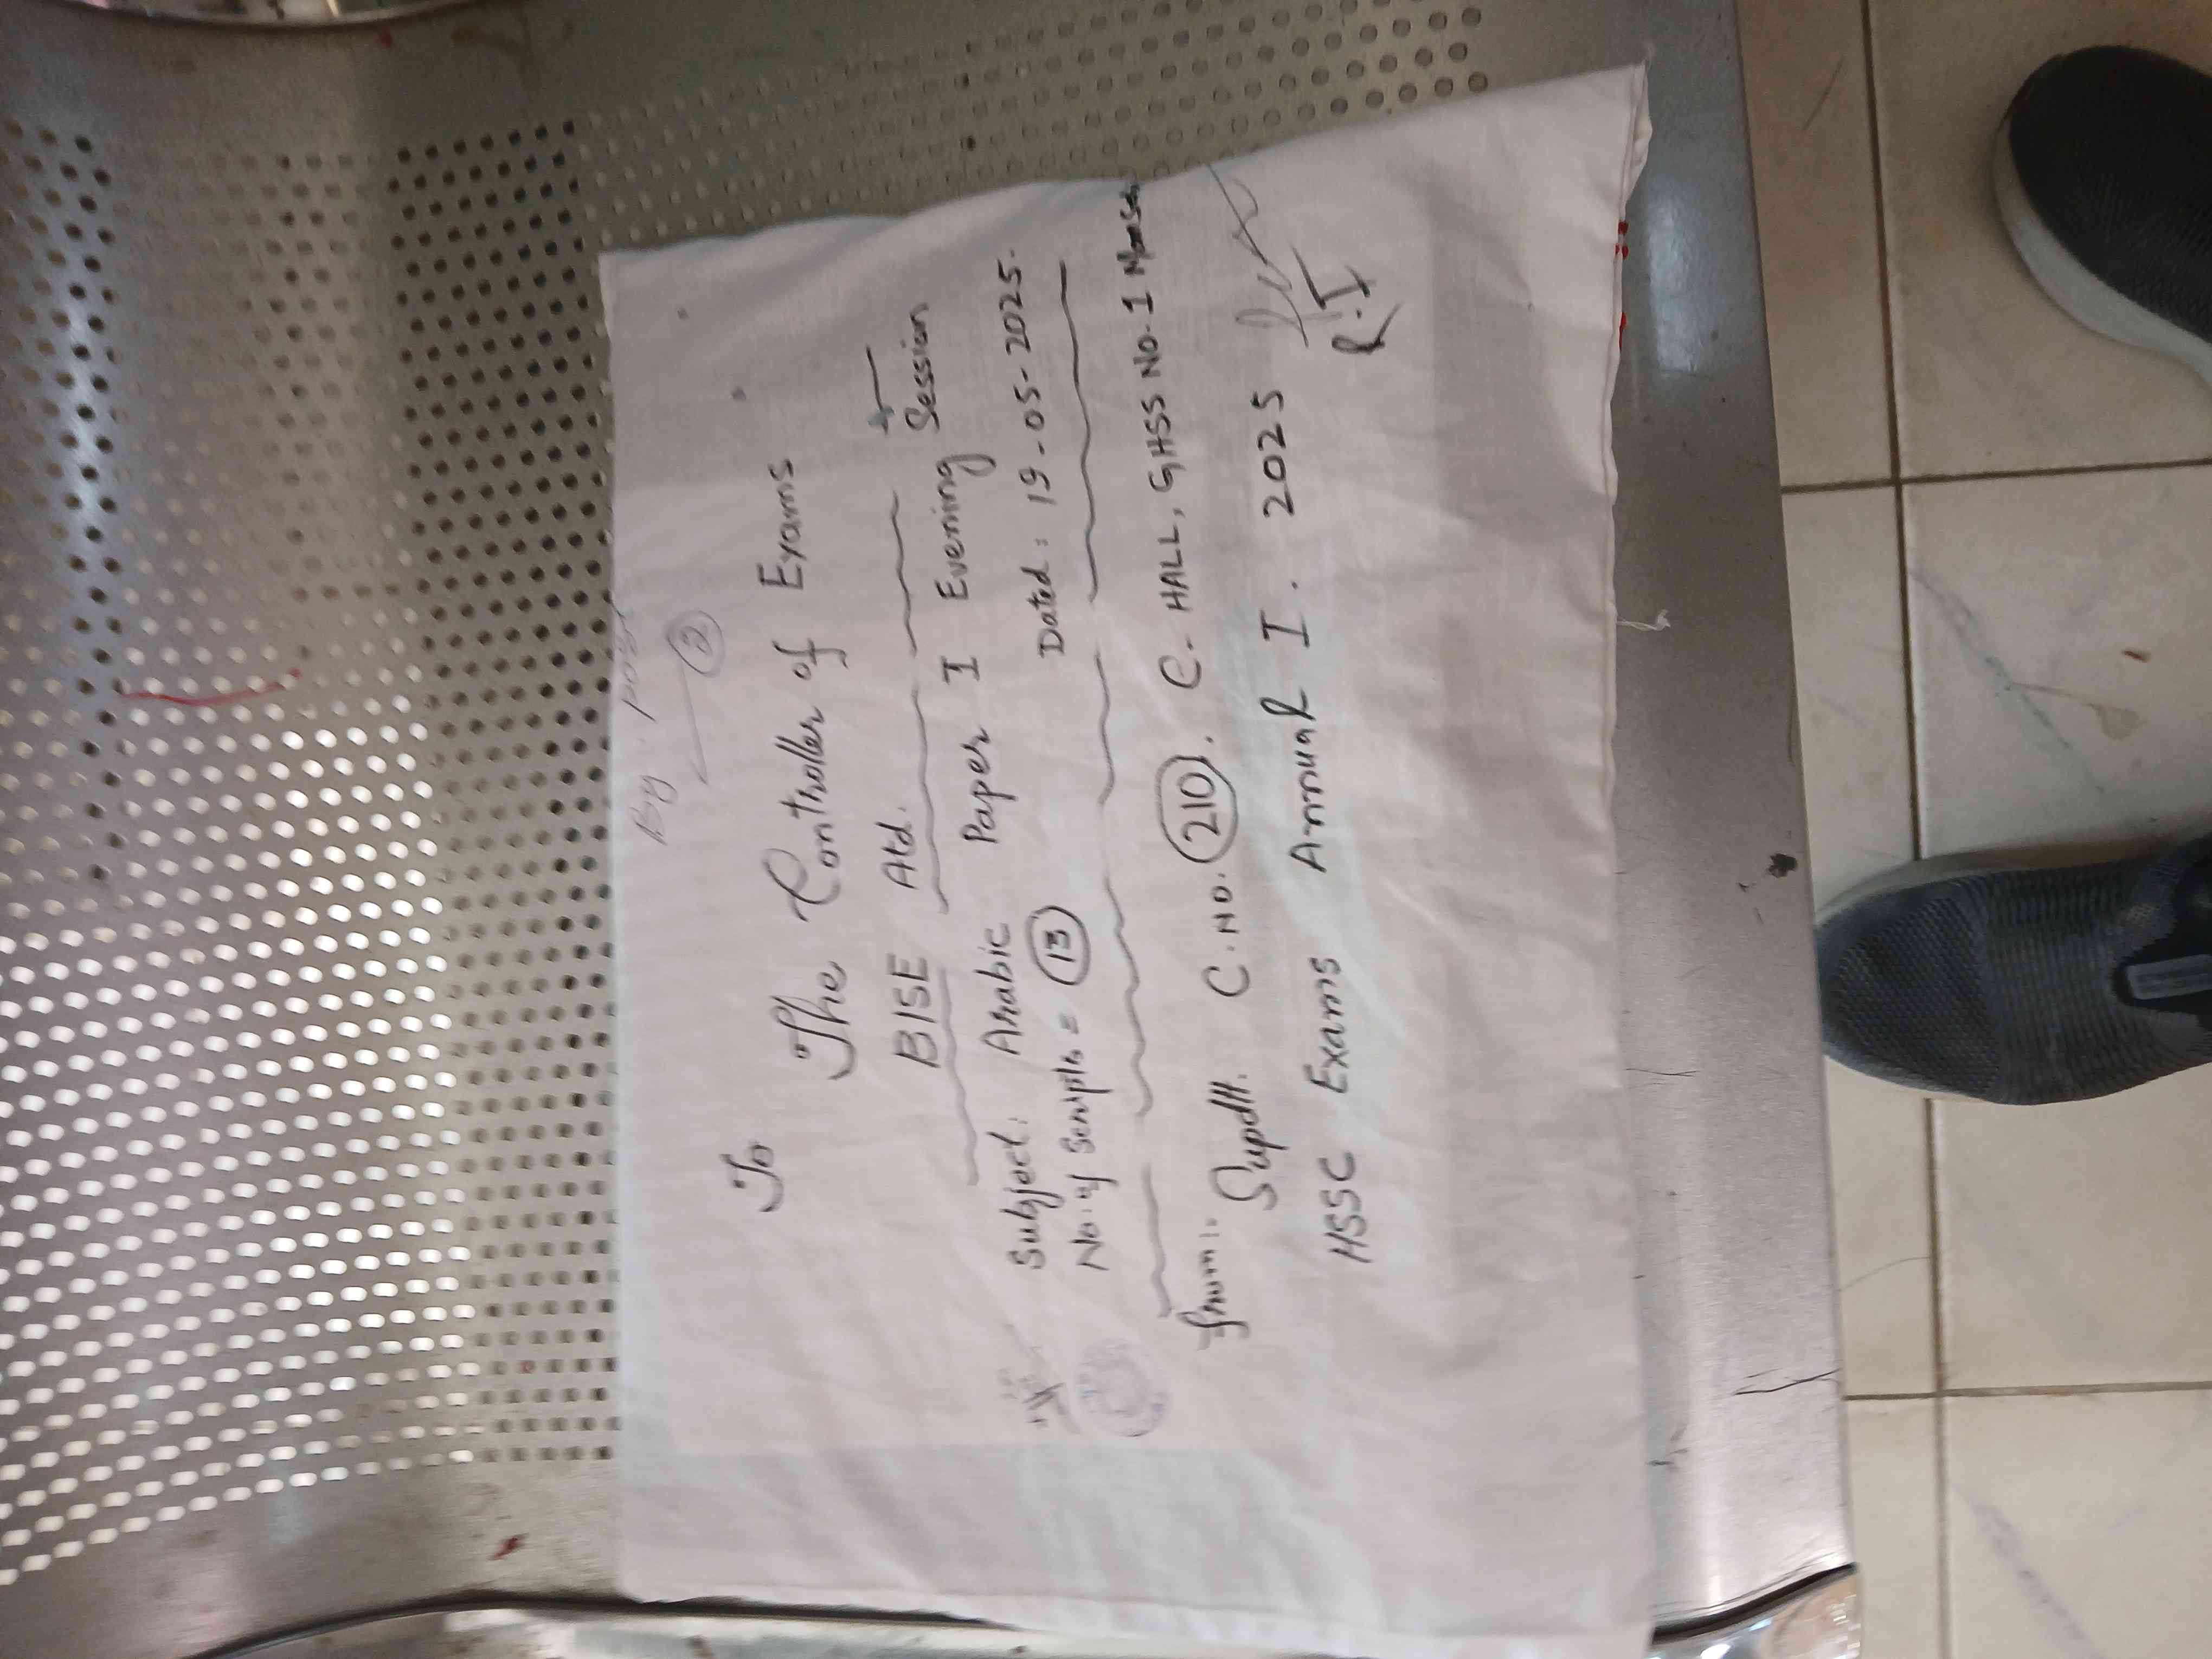 By post
2
To
The Controller of Exams
BISE Atd.
Subject: Arabic Paper I Evening Session
No. of Scripts = 13 Dated: 19-05-2025.
From:-
Supdtt. C.No. 210. C. HALL, GHSS No.1
HSSC Exams Annual I. 2025
R.I